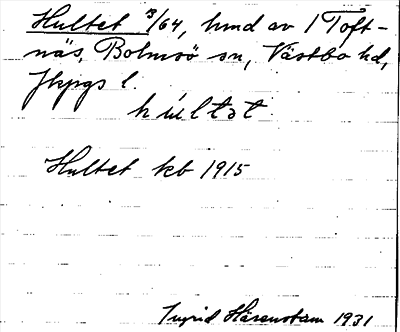 Hultet 3/64, hmd av 1 Toft-
näs, Bolmsö sn, Västbo hd,
Jkpgs l.
hultət
Hultet kb 1915
Ingrid Härenstam 1931